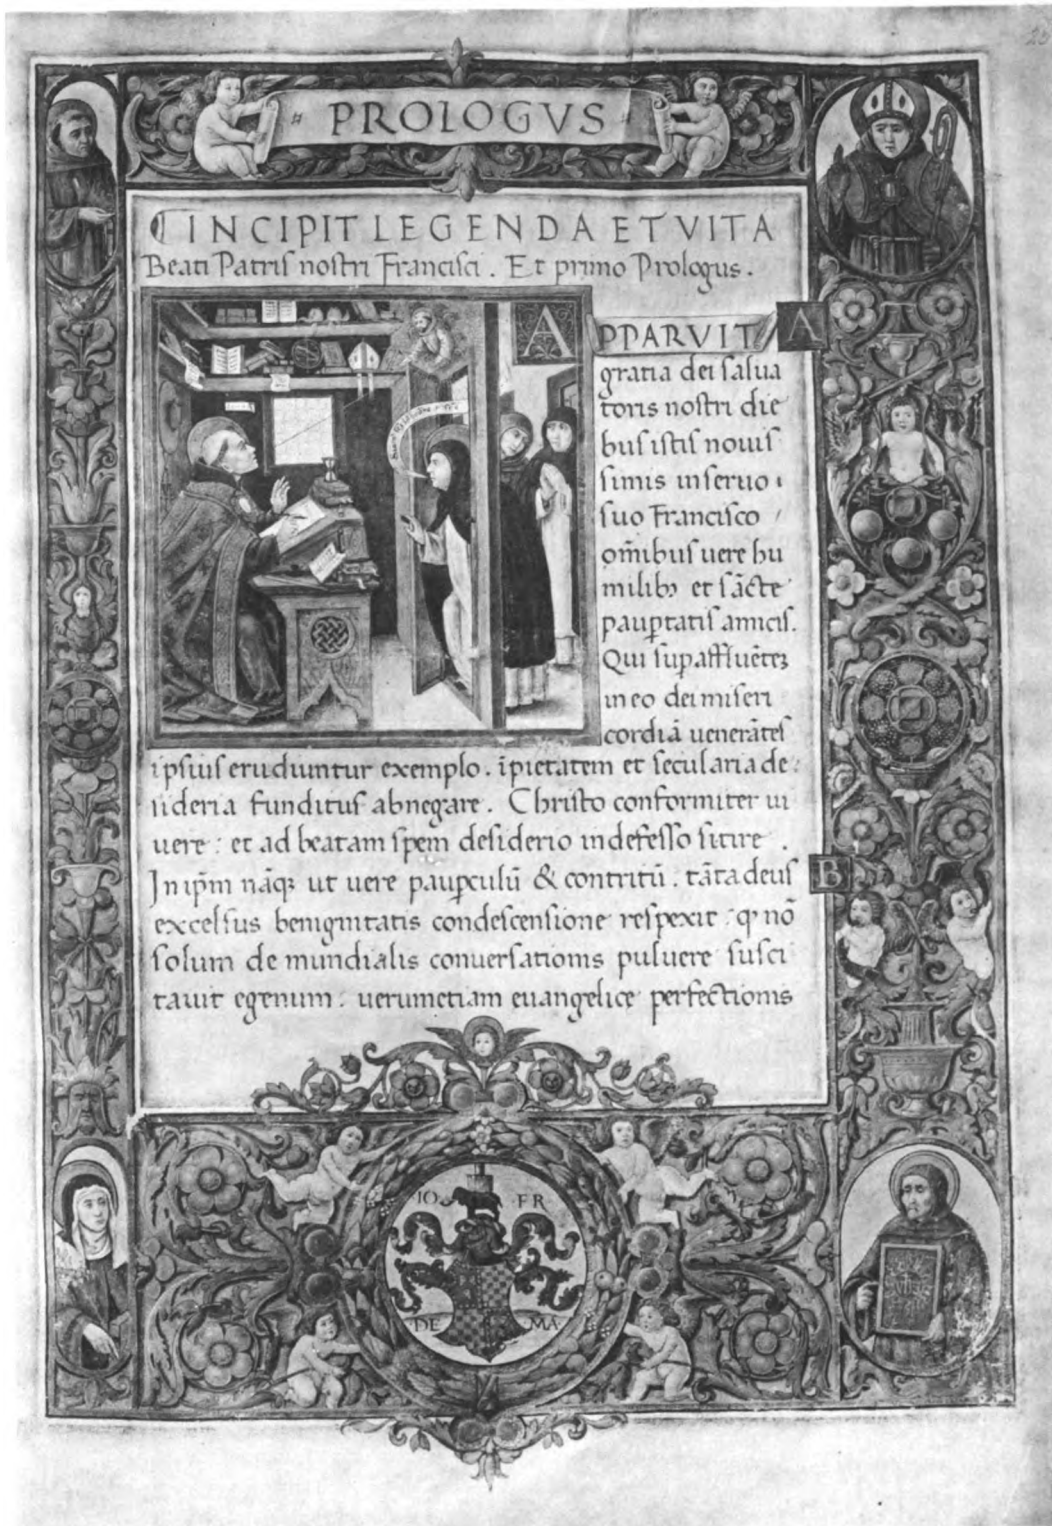 PROLOGVS
INCIPIT LEGENDA ET VITA
Beati Patris nostri Francisci. Et primo Prologus.
A
PPARVIT A
gratia dei salua
toris nostri die
bus istis nouis
simis in seruo
suo Francisco
om̄ibus uere hu
milibꝫ et sācte
pauꝑtatis amicis.
Qui suꝑaffluētēꝫ
in eo dei miseri
cordiā uenerātes
ipsius erudiuntur exemplo. īpietatem et secularia de
sideria funditus abnegare. Christo conformiter ui
uere: et ad beatam spem desiderio indefesso sitire.
In ip̄m nāqꝫ ut uere pauꝑculū & contritū. tāta deus B
excelsus benignitatis condescensione respexit: ꝙ nō
solum de mundialis conuersationis puluere susci
tauit egenum: uerumetiam euangelice perfectionis
IO FR
DE MA